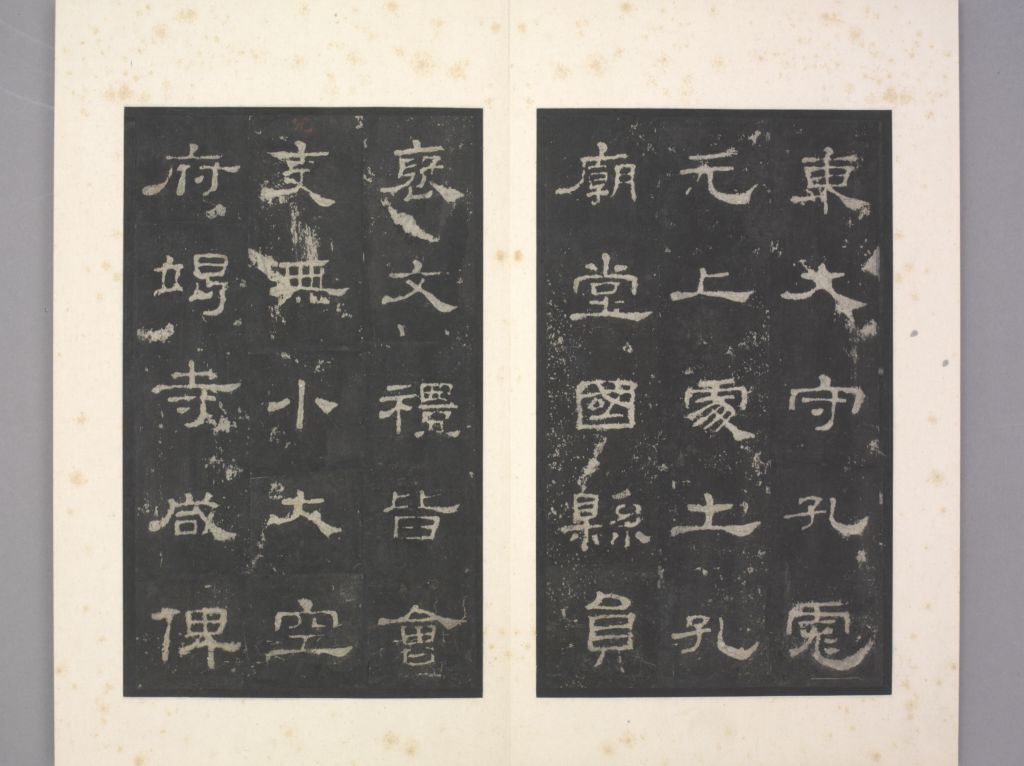 東大守孔彪
元上處土孔
廟堂國縣員
褒文禮皆會
吏無小大空
府竭寺咸俾